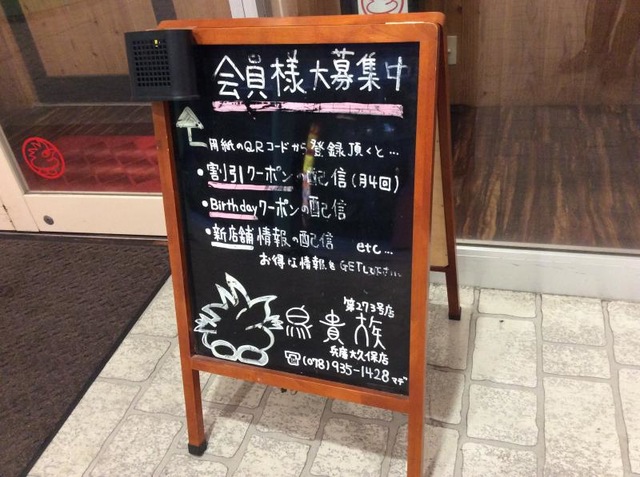 会員様大募集中
用紙のQRコードから登録頂くと…
・割引クーポンの配信(月4回)
・Birthdayクーポンの配信
・新店舗情報の配信 etc…
お得な情報をGETして下さい
第273号店
鳥貴族
兵庫大久保店
☎(078)935-1428マデ